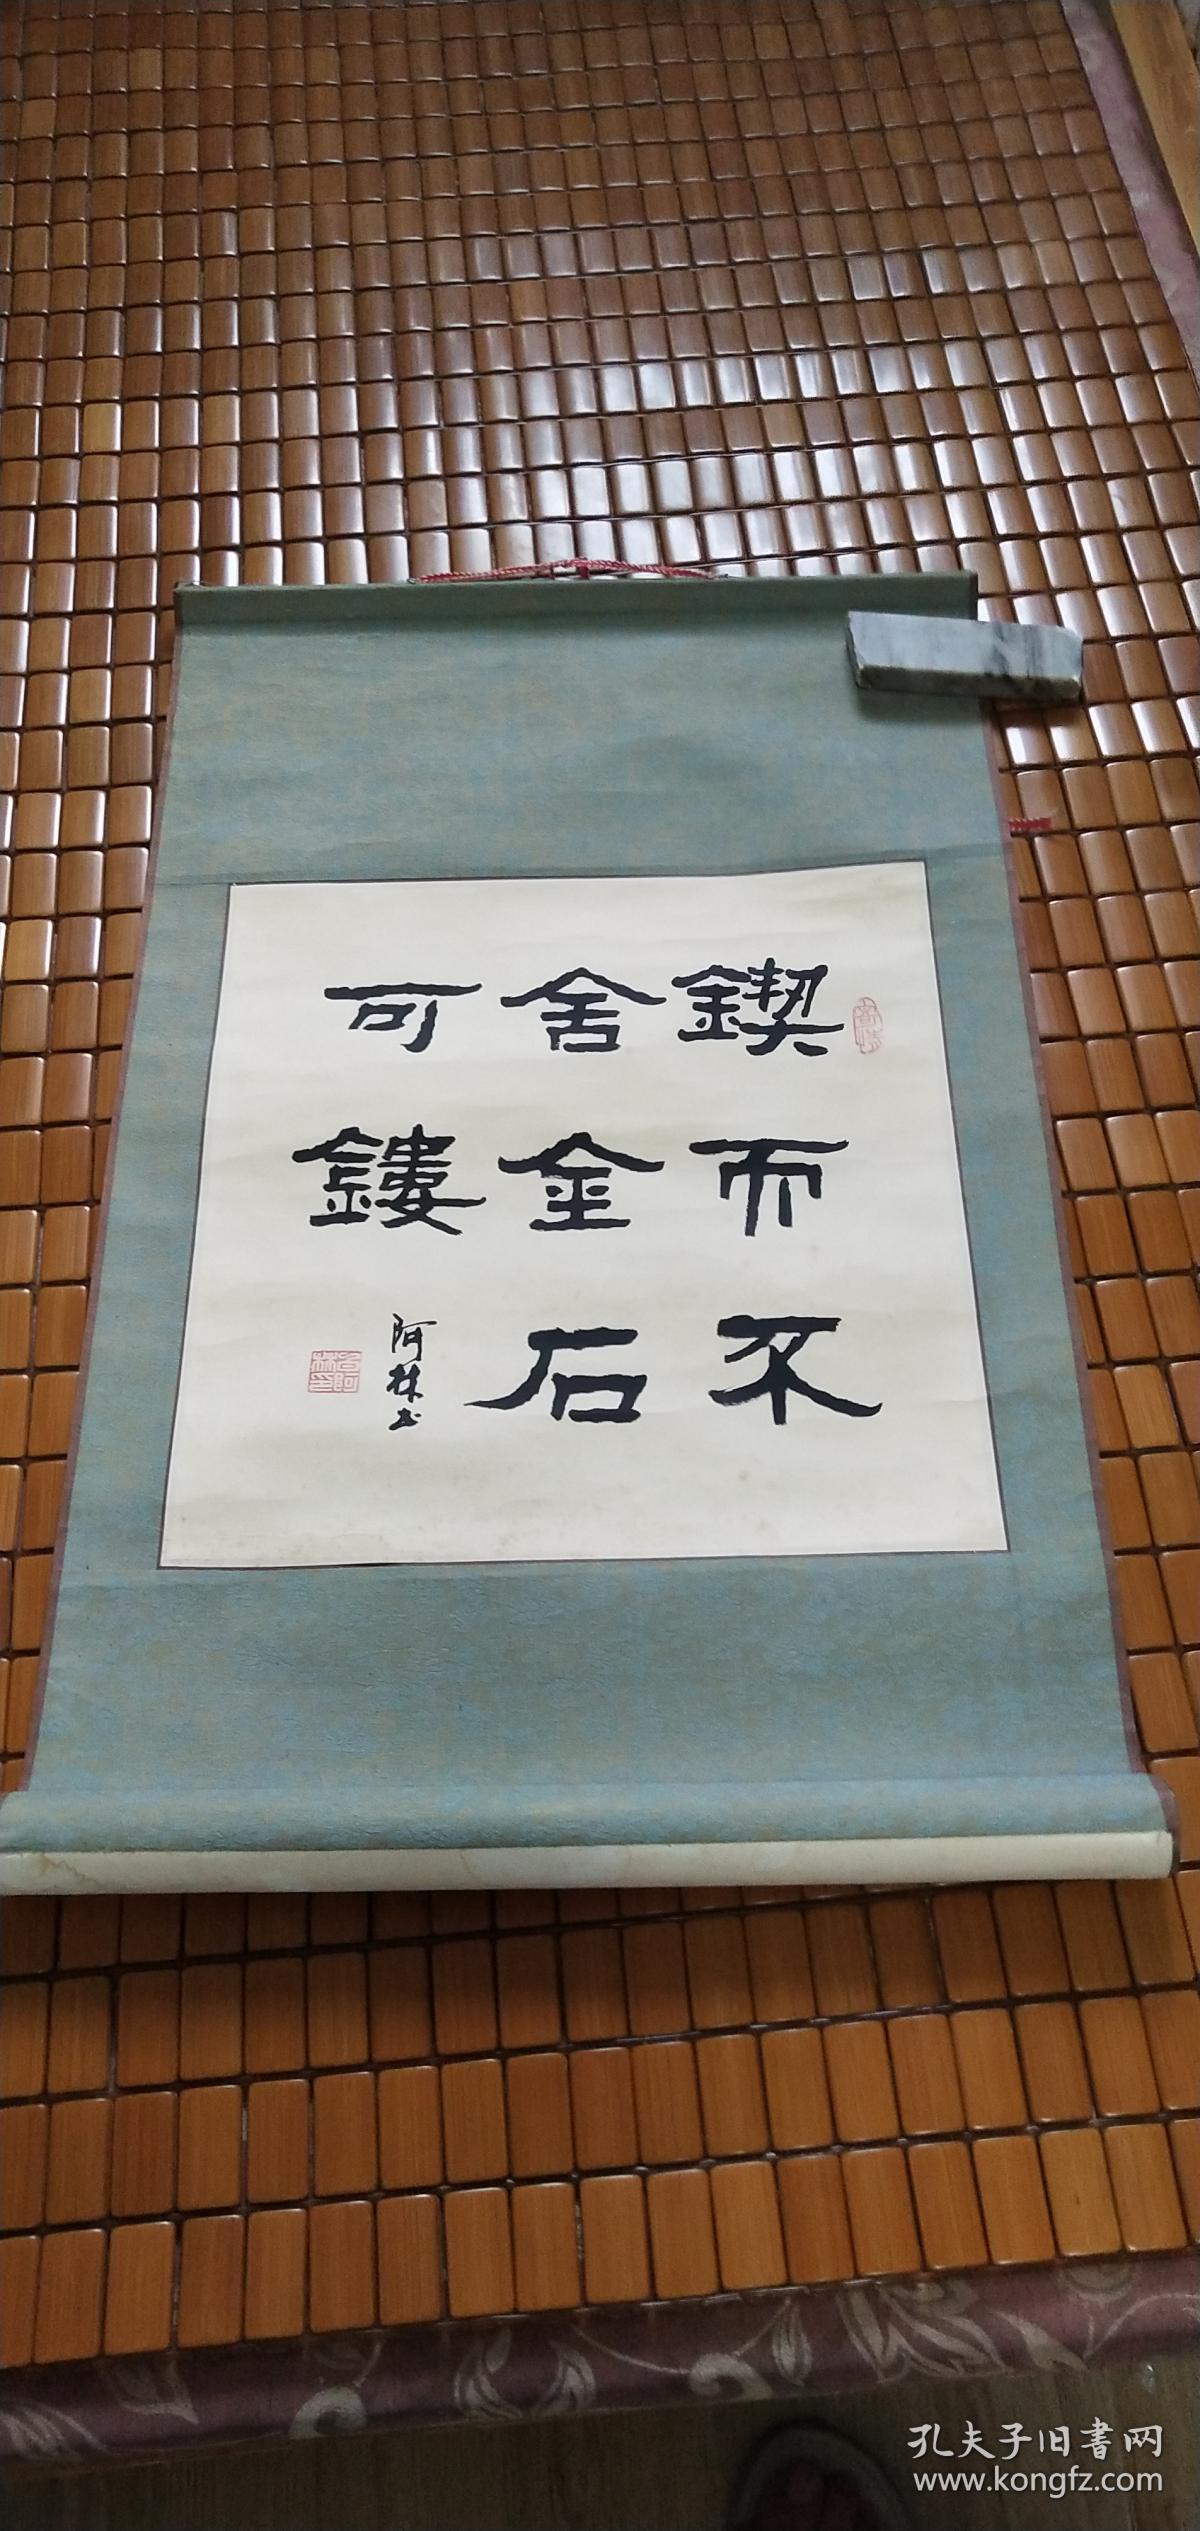 鍥而不
舍金石
可鏤
阿林书
孔夫子旧書网
www.kongfz.com